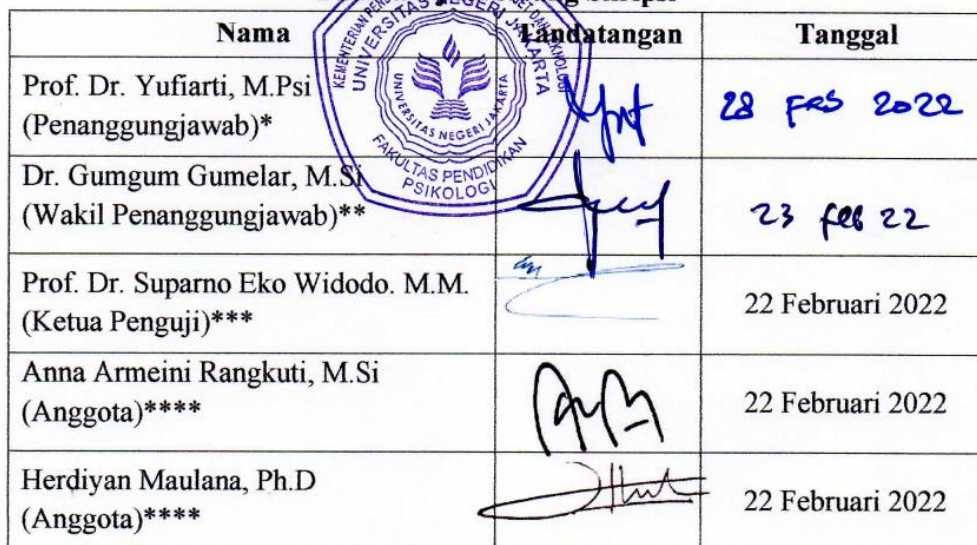 Nama Tandatangan Tanggal
Prof. Dr. Yufiarti, M.Psi
(Penanggungjawab)*
28 FEB 2022
Dr. Gumgum Gumelar, M.Si
(Wakil Penanggungjawab)**
23 feb 22
Prof. Dr. Suparno Eko Widodo. M.M.
(Ketua Penguji)***
22 Februari 2022
Anna Armeini Rangkuti, M.Si
(Anggota)****
22 Februari 2022
Herdiyan Maulana, Ph.D
(Anggota)****
22 Februari 2022
UNIVERSITAS NEGERI JAKARTA
UNIVERSITAS NEGERI JAKARTA
FAKULTAS PENDIDIKAN
PSIKOLOGI